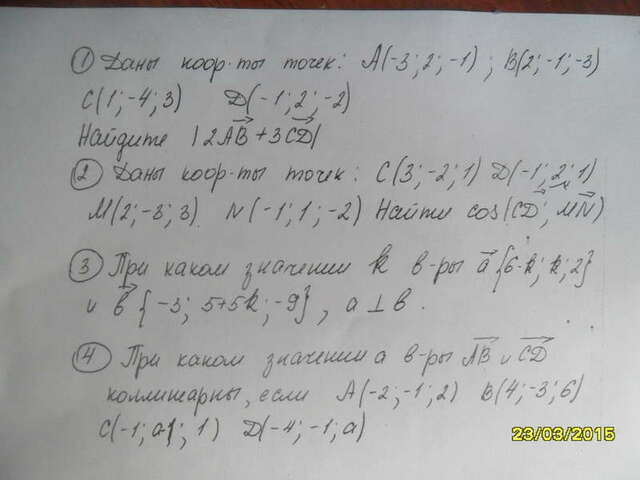 ① Даны коор-ты точек: A(-3; 2; -1); B(2; -1; -3)
C(1; -4; 3) D(-1; 2; -2)
Найдите |2AB + 3CD|
② Даны коор-ты точек: C(3; -2; 1) D(-1; 2; 1)
M(2; -3; 3) N(-1; 1; -2) Найти cos(CD; MN)
③ При каком значении k в-ры a {6-k; k; 2}
и b {-3; 5+5k; -9}, a ⊥ b.
④ При каком значении a в-ры AB и CD
коллинарны, если A(-2; -1; 2) B(4; -3; 6)
C(-1; a-1; 1) D(-4; -1; a)
23/03/2015